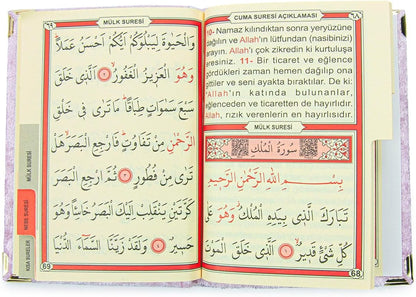 CUMA SURESİ AÇIKLAMASI ٦٨
10- Namaz kılındıktan sonra yeryüzüne
dağılın ve Allah'ın lütfundan (nasibinizi)
arayın. Allah'ı çok zikredin ki kurtuluşa
eresiniz. 11- Bir ticaret ve eğlence
gördükleri zaman hemen dağılıp ona
gittiler ve seni ayakta bıraktılar. De ki:
"Allah'ın katında bulunanlar,
eğlenceden ve ticaretten de hayırlıdır.
Allah, rızık verenlerin en hayırlısıdır.
MÜLK SURESİ
سُورَةُ الْمُلْكِ
بِسْمِ اللهِ الرَّحْمٰنِ الرَّحِيمِ
تَبَارَكَ الَّذِى بِيَدِهِ الْمُلْكُ وَهُوَ عَلٰى
كُلِّ شَىْءٍ قَدِيرٌ ١ اَلَّذِى خَلَقَ الْمَوْتَ
68
٦٩ MÜLK SURESİ
وَالْحَيٰوةَ لِيَبْلُوَكُمْ اَيُّكُمْ اَحْسَنُ عَمَلًا
وَهُوَ الْعَزِيزُ الْغَفُورُ ٢ اَلَّذِى خَلَقَ
سَبْعَ سَمٰوَاتٍ طِبَاقًا مَا تَرٰى فِى خَلْقِ
الرَّحْمٰنِ مِنْ تَفَاوُتٍ فَارْجِعِ الْبَصَرَ هَلْ
تَرٰى مِنْ فُطُورٍ ٣ ثُمَّ ارْجِعِ الْبَصَرَ
كَرَّتَيْنِ يَنْقَلِبْ اِلَيْكَ الْبَصَرُ خَاسِئًا وَهُوَ
حَسِيرٌ ٤ وَلَقَدْ زَيَّنَّا السَّمَاءَ الدُّنْيَا
69
MÜLK SURESİ
NEBE SURESİ
KISA SURELER